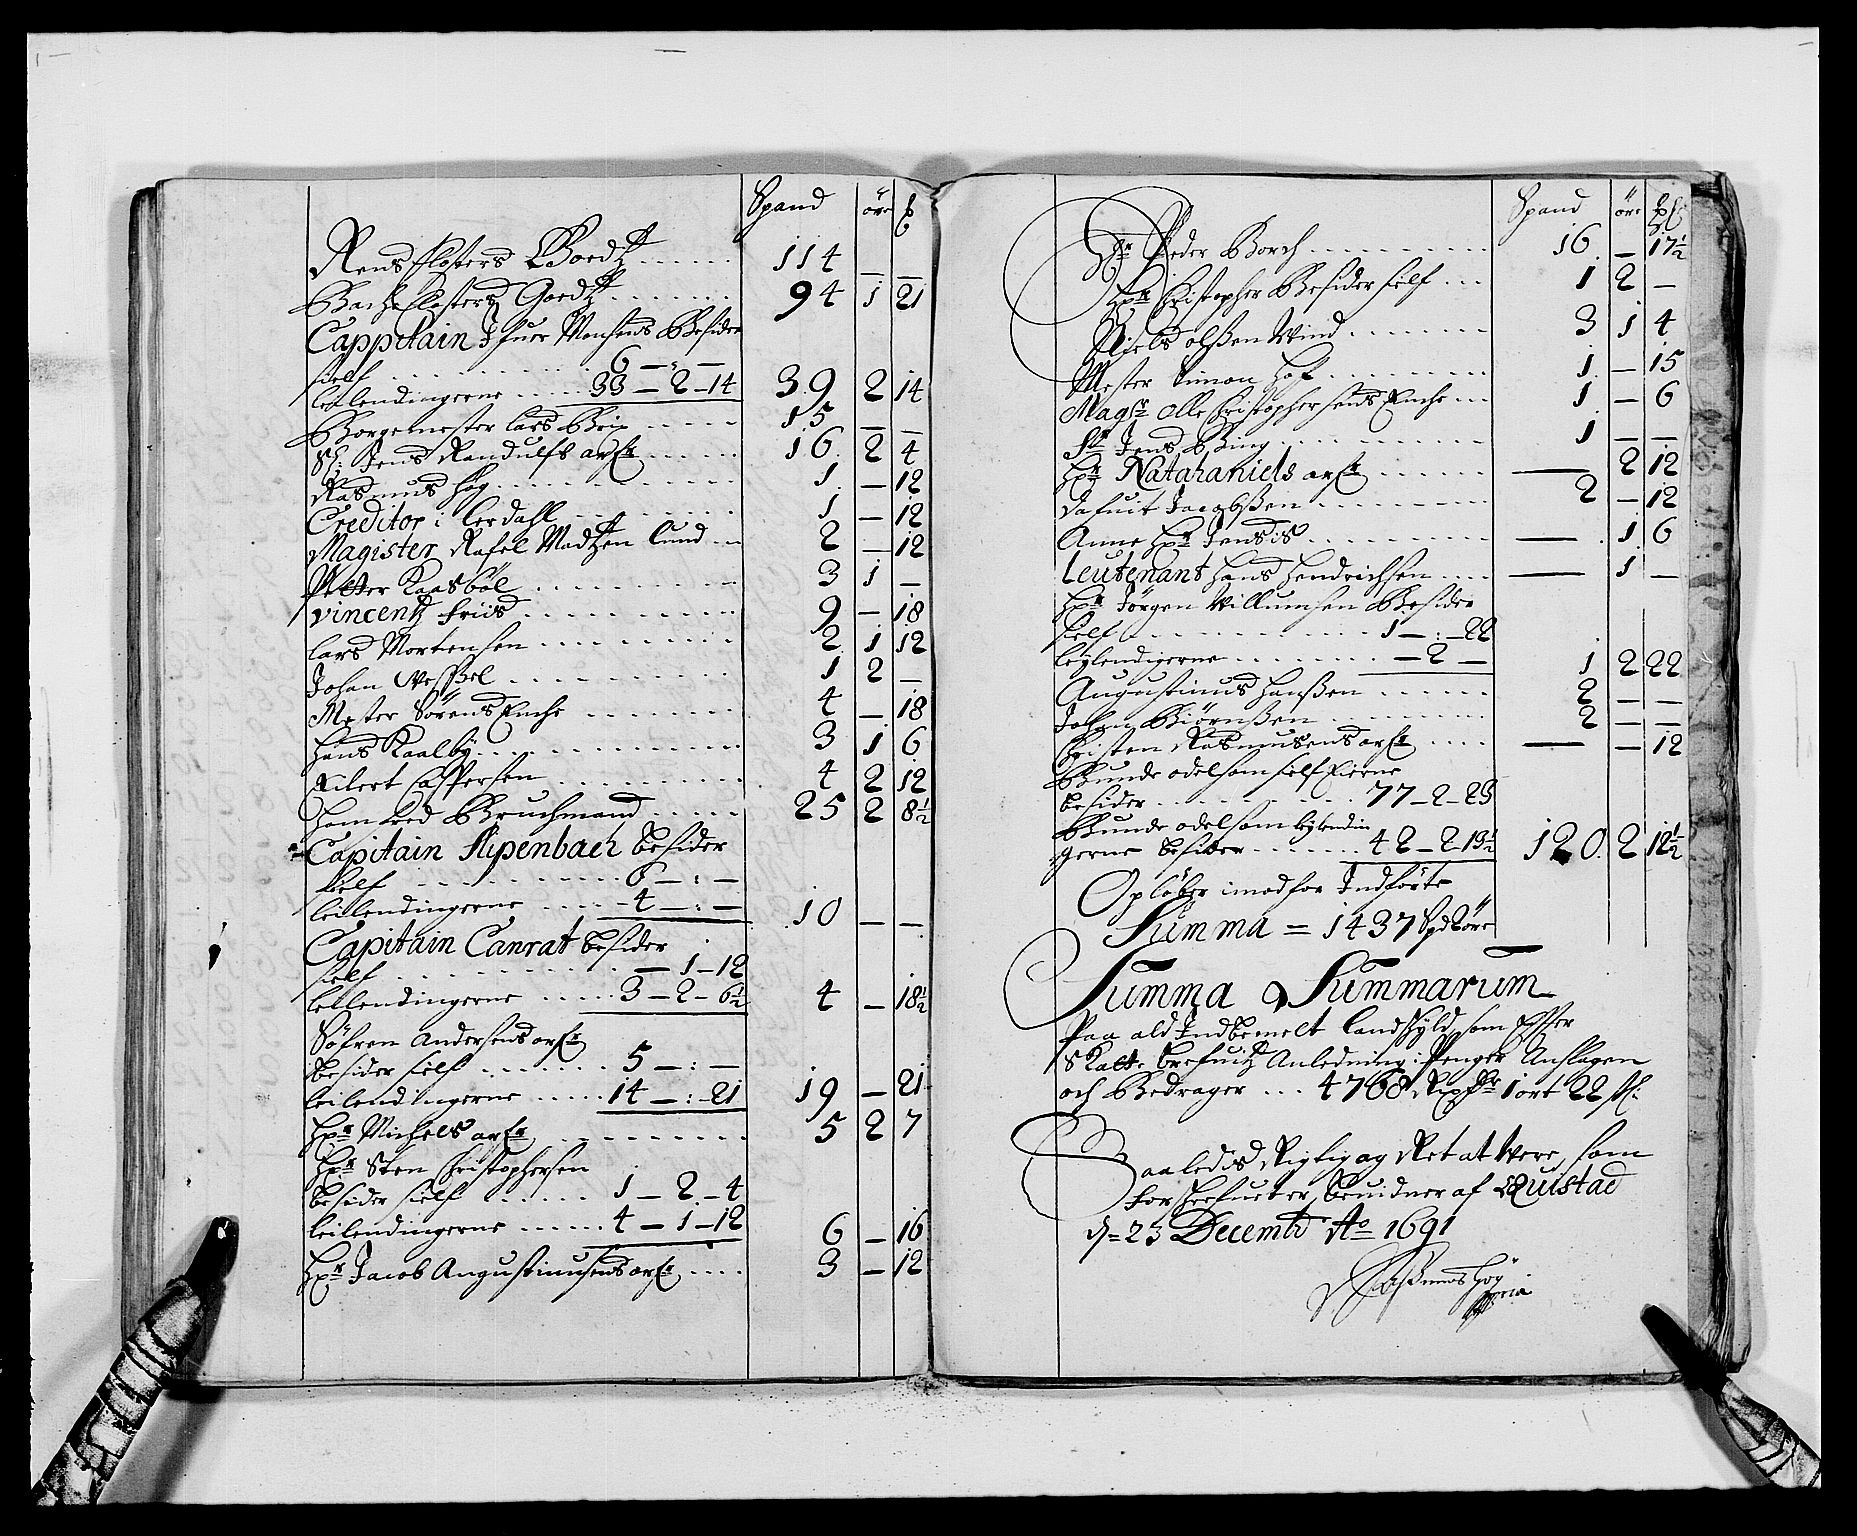 Spand öre
Rens Closters Goedtz ...... 114 — —
Bache Closters Goedtz ....... 94 1 21
Cappitain Ifuer Monsens Besider
sielf .......... 6 — : —
leilendingerne ..... 33 — 2 — 14 39 2 14
Borgemester lars Brix ..... 15 — —
Sl: Jens Randulfs arf: ...... 16 2 4
Rasmus Høg ........... 1 — 12
Creditor i lerdahl ......... 1 — 12
Magister Rafel Madtzen lund ... 2 — 12
Petter Kaasböl .......... 3 1 —
Vincentz Friis .......... 9 — 18
lars Mortensen ......... 2 1 12
Johan Wessel .......... 1 2 —
Mester Sörens Enche ....... 4 — 18
Hans Kaalby ........... 3 1 6
Eilert Caspersen ......... 4 2 12
Bruchmand ..... 25 2 8½
Capitain Slipenbach besider
sielf ......... 6 — : —
leilendingerne ..... 4 — : — 10 — —
Capitain Canrat besider
sielf .......... — 1 — 12
leilendingerne ..... 3 — 2 — 6½ 4 — 18½
Söfren Andersens arf:
besider sielf ....... 5 — : —
leilendingerne ..... 14 — : — 21 19 — 21
Hr Michels arf: ......... 5 2 7
Hr Sten Christophersen
besider sielf ...... 1 — 2 — 4
leilendingerne ...... 4 — 1 — 12 6 — 16
Hr Jacob Augustinusens arf: .... 3 — 12
Spand öre
Hr Peder Borch .......... 16 — 17½
Hr Christopher Besider sielf ... 1 2 —
Niels olssen Wind ........ 3 1 4
Mester Simon Hof ......... 1 — 15
Magr olle Christophersens Enche ... 1 — 6
Sr Jens Bing ........... 1 — —
Hr Natahaniels arf: ....... — 2 12
Dafuit Jacobssen ......... 2 — 12
Anne Hr Jens's .......... — 1 6
Leutenant Hans Hendrichsen .... — 1 —
Hr Jörgen Willumsen Besider
sielf .......... 1 — : — 22
leylendigerne ........ — 2 — 1 2 22
Augustinus Hanssen ...... 2 — —
Johan Biörnssen ......... 2 — —
Christen Rasmusens arf: .... — — 12
Bunde odel som sielf Eierne
besider ......... 77 — 2 — 23
Bunde odel som leylendin
gerne besider ....... 42 — 2 19½ 120 2 12½
Opløber imod for Indförte
Summa = 1437 Spd 2 öre
Summa Summarum
Paa ald Indbemelt landschyld, som Efter
Skatte brefuitz Anledning i Penger Anslagen
och Bedrager ... 4768 Rixdr 1 ort 22 s:
Saaledis Rigtig og Ret at Were, som
forschrefuet er, beuidner af Quistad
d= 23 Decembr Ao 1691
Rassmus Høg
mpria